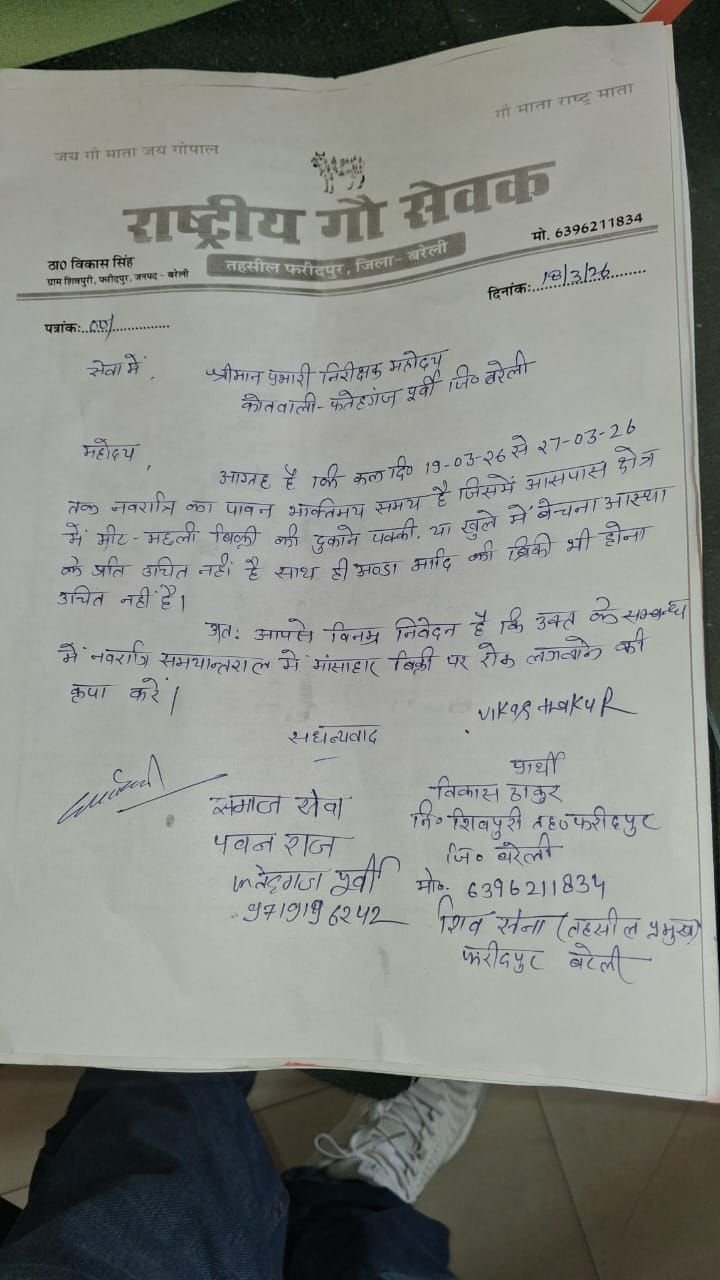 जय गौ माता जय गोपाल
गौ माता राष्ट्र माता
राष्ट्रीय गौ सेवक
ठा० विकास सिंह
ग्राम शिवपुरी, फरीदपुर, जनपद - बरेली
तहसील फरीदपुर, जिला- बरेली
मो. 6396211834
पत्रांक:
दिनांक: 18/3/26
सेवा में,
श्रीमान प्रभारी निरीक्षक महोदय
कोतवाली- फतेहगंज पूर्वी जि० बरेली
महोदय,
आग्रह है कि कल दि० 19-03-26 से 27-03-26
तक नवरात्रि का पावन भक्तिमय समय है जिसमें आसपास क्षेत्र
में मीट - मछली बिक्री की दुकाने पक्की. या खुले में बेचना आस्था
के प्रति उचित नहीं है साथ ही अण्डा आदि की बिक्री भी होना
उचित नहीं है।
अत: आपसे विनम्र निवेदन है कि उक्त के सम्बन्ध
में नवरात्रि समयान्तराल में मांसाहार बिक्री पर रोक लगवाने की
कृपा करें।
सधन्यवाद
VIKAS THAKUR
प्रार्थी
विकास ठाकुर
नि० शिवपुरी तह० फरीदपुर
जि० बरेली
मो० 6396211834
शिव सेना (तहसील प्रमुख)
फरीदपुर बरेली
समाज सेवा
पवन राज
फतेहगंज पूर्वी
9719196242